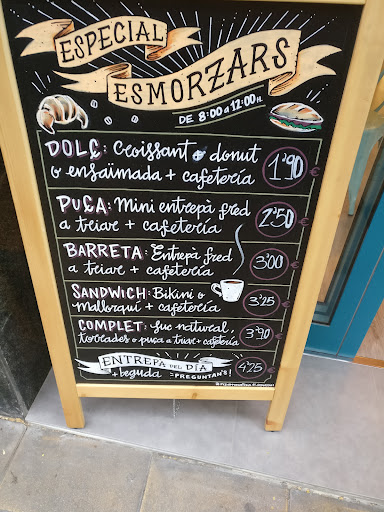 ESPECIAL
ESMORZARS
DE 8:00 a 12:00H.
DOLÇ: Croissant o donut
o ensaïmada + cafeteria 1'90 €
PUÇA: Mini entrepà fred
a triar + cafeteria 2'50 €
BARRETA: Entrepà fred
a triar + cafeteria 3'00 €
SANDWICH: Bikini o
mallorquí + cafeteria 3'25 €
COMPLET: Suc natural,
torrades o puça a triar + cafeteria 3'90 €
ENTREPÀ DEL DIA
+ beguda PREGUNTA'NS! 4'25 €